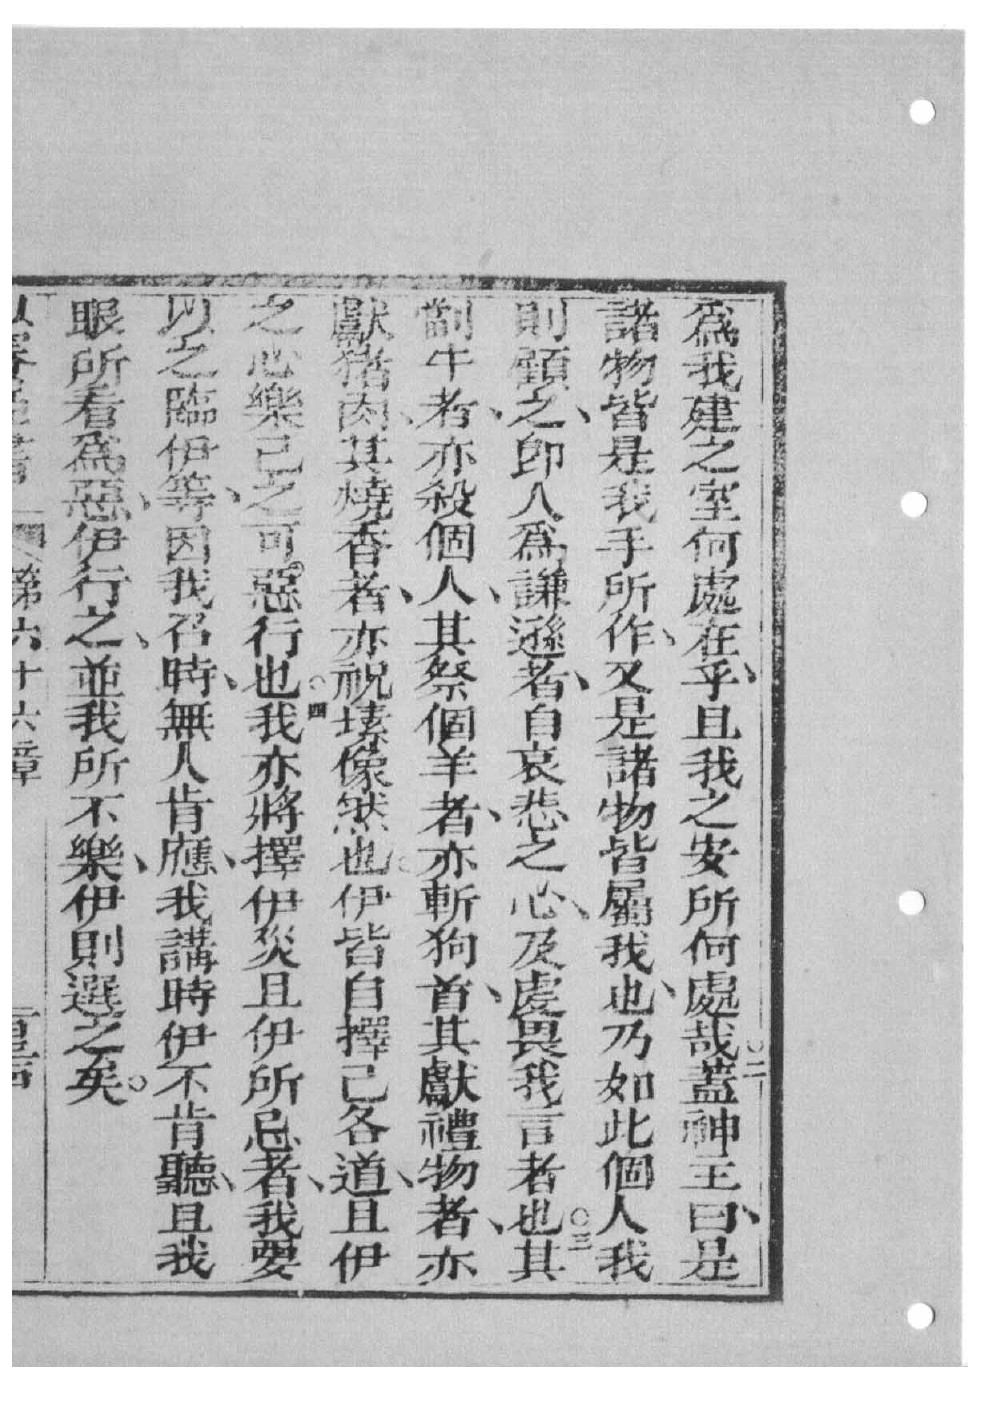 爲我建之室何處在乎、且我之安所何處哉○二蓋神主曰、是
諸物皆是我手所作、又是諸物皆屬我也、乃如此個人我
則顧之、卽人爲謙遜者、自哀悲之心、及處畏我言者也○三其
劏牛者、亦殺個人、其祭個羊者、亦斬狗首、其獻禮物者、亦
獻猪肉、其燒香者、亦祝塿像然也。伊皆自擇己各道、且伊
之心樂己之可惡行也○四我亦將擇伊災、且伊所忌者、我要
以之臨伊等、因我召時、無人肯應、我講時伊不肯聽、且我
眼所看爲惡、伊行之、並我所不樂、伊則選之矣。
第六十六章